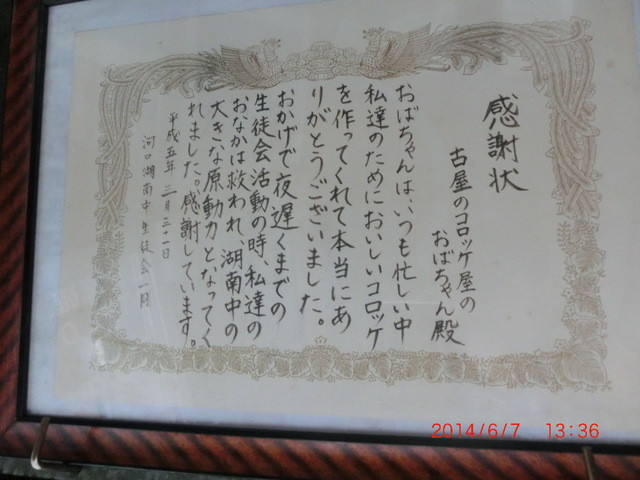 感謝状
古屋のコロッケ屋の
おばちゃん殿
おばちゃんは、いつも忙しい中
私達のためにおいしいコロッケ
を作ってくれて本当にあ
りがとうございました。
おかげで夜遅くまでの
生徒会活動の時、私達の
おなかは救われ、湖南中の
大きな原動力となってく
れました。感謝しています。
平成五年 三月二一日
河口湖南中 生徒会一同
2014/6/7 13:36